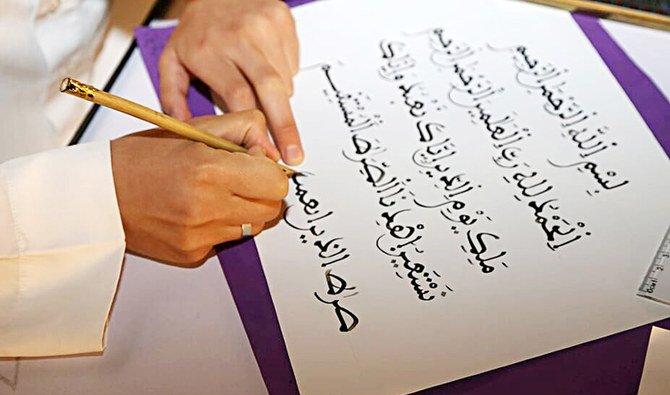 بسم الله الرحمن الرحيم
الحمد لله رب العلمين الرحمن الرحيم
ملك يوم الدين اياك نعبد واياك
نستعين اهدنا الصراط المستقيم
صراط الذين انعمت